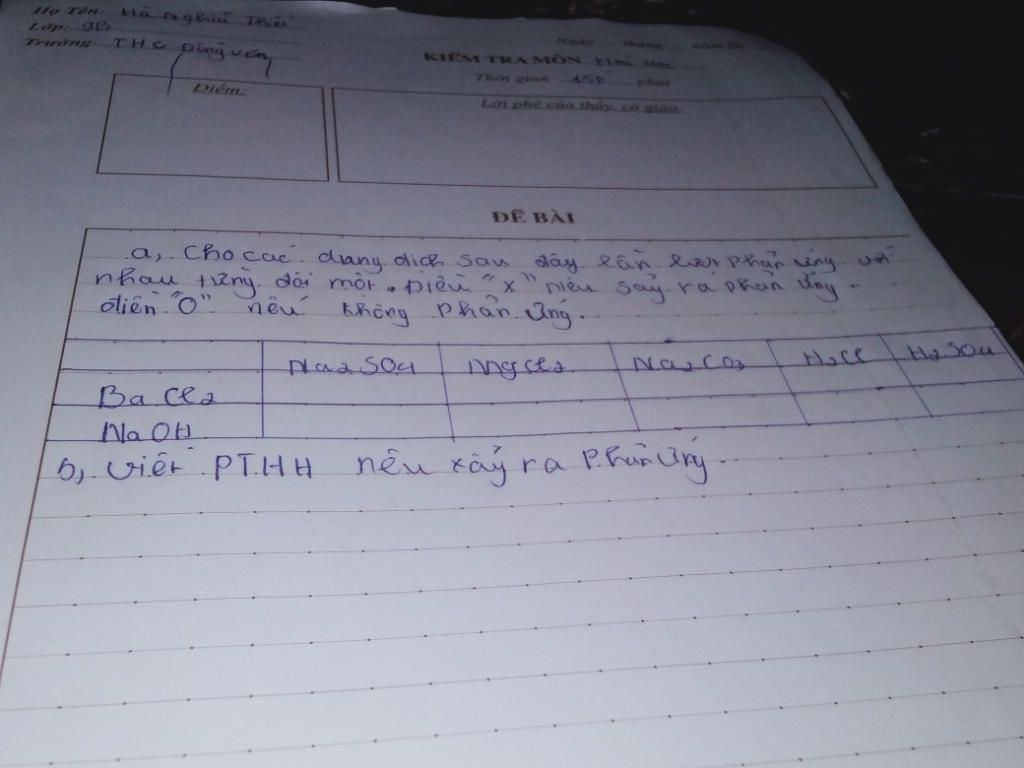 Họ Tên: Hà Nghĩa
Lớp: 9B
Trường: THC Đồng Văn
Ngày tháng năm 20
KIỂM TRA MÔN Hoá Học
Thời gian 15P phút
Điểm:
Lời phê của thầy, cô giáo
ĐỀ BÀI
a, Cho các dung dịch sau đây lần lượt phản ứng với
nhau từng đôi một. Điền "x" nếu sảy ra phản ứng.
điền "O" nếu không phản ứng.
Na2SO4 MgCl2 Na2CO3 H2Cl H2SO4
BaCl2
NaOH
b, Viết PTHH nếu xảy ra phản ứng.